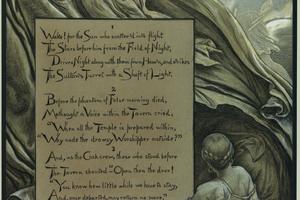 1
Wake! for the Sun who scatter'd into flight
The Stars before him from the Field of Night,
Drives Night along with them from Heav'n, and strikes
The Sultan's Turret with a Shaft of Light.
2
Before the phantom of False morning died,
Methought a Voice within the Tavern cried,
"When all the Temple is prepared within,
"Why nods the drowsy Worshipper outside?"
3
And, as the Cock crew, those who stood before
The Tavern shouted—"Open then the door!
"You know how little while we have to stay,
And, once departed, may return no more."